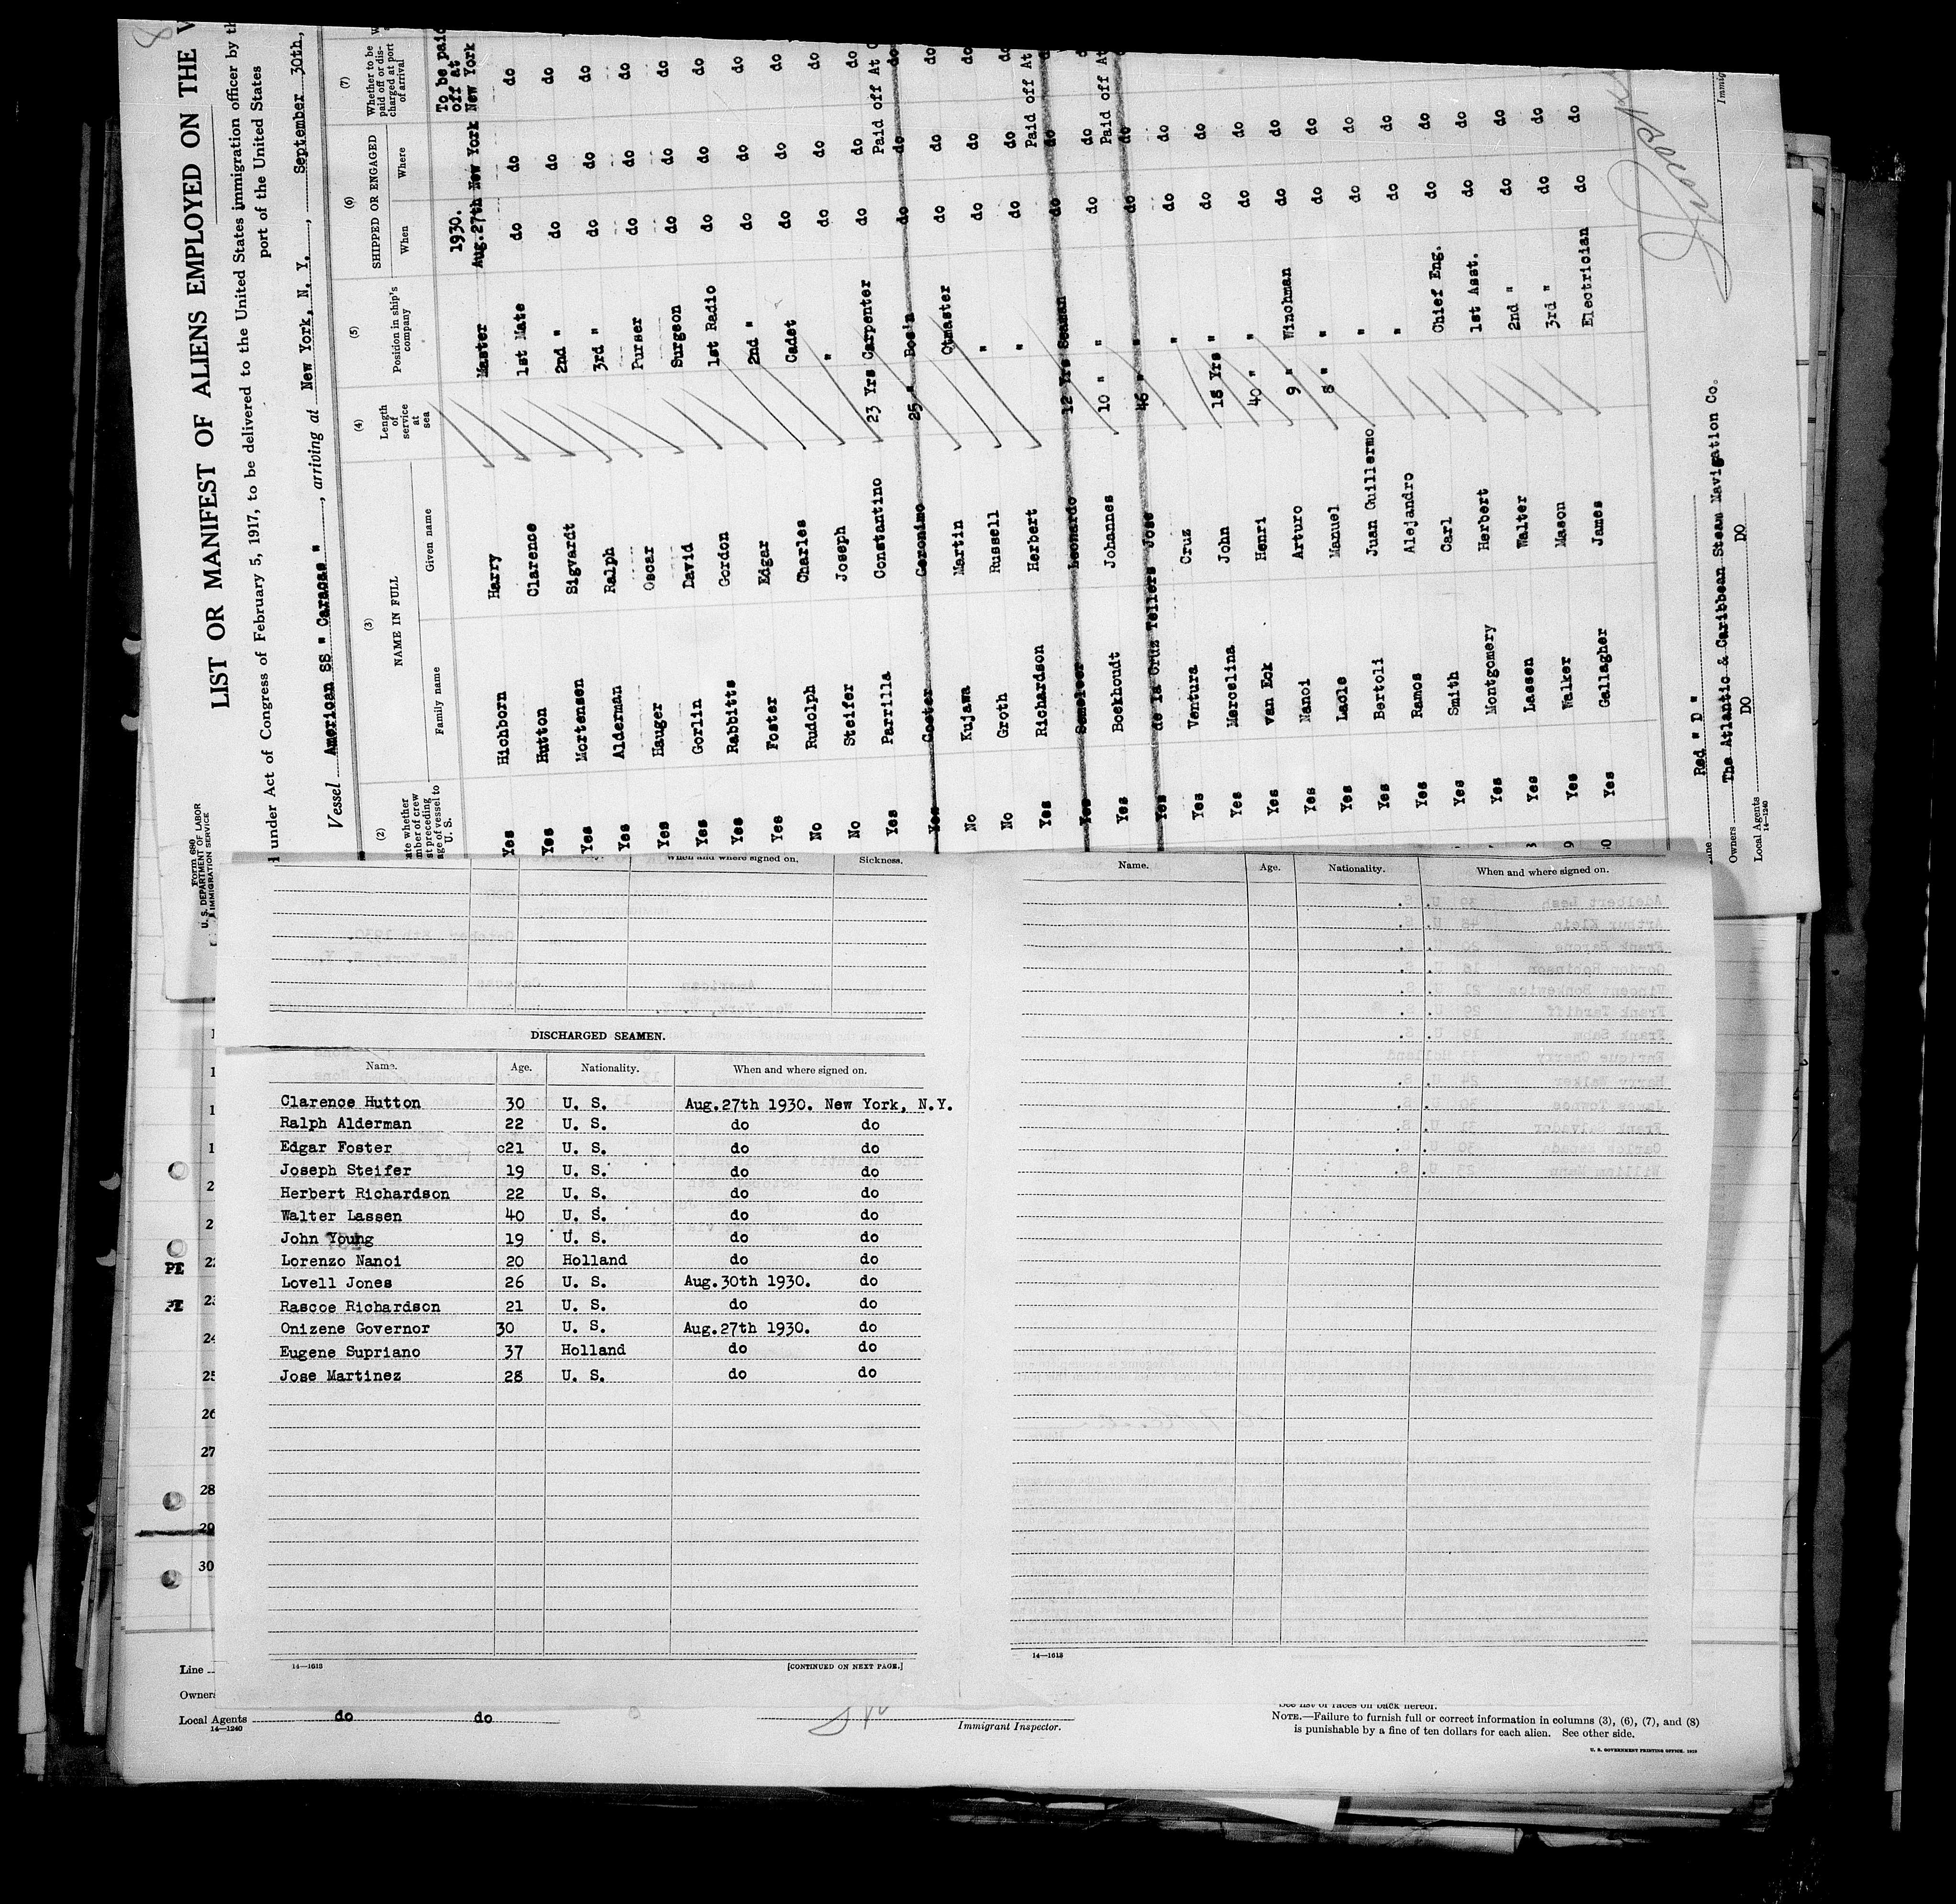 LIST OR MANIFEST OF ALIENS EMPLOYED ON THE
under Act of Congress of February 5, 1917, to be delivered to the United States immigration officer by
port of the United States
Vessel American SS " Caracas ", arriving at New York, N. Y., September 30th,
Form 680
U. S. DEPARTMENT OF LABOR
IMMIGRATION SERVICE
(2) (3) (4) (5) (6) (7)
NAME IN FULL
Family name Given name
Length of service at sea
Position in ship's company
SHIPPED OR ENGAGED
When Where
Whether to be paid off or discharged at port of arrival
1930. To be paid off at
Yes Hichborn Harry Master Aug.27th New York New York
Yes Hutton Clarence 1st Mate do do do
Yes Mortensen Sigvardt 2nd " do do do
Yes Alderman Ralph 3rd " do do do
Yes Hauger Oscar Purser do do do
Yes Gorlin David Surgeon do do do
Yes Rabbitts Gordon 1st Radio do do do
Yes Foster Edgar 2nd " do do do
No Rudolph Charles Cadet do do do
No Steifer Joseph " do do do
Yes Parrilla Constantino 23 Yrs Carpenter do do do
Paid off At
Yes Coster Geronimo 25 " Bos'n do do do
No Kujawa Martin Qtmaster do do do
No Groth Russell " do do do
Yes Richardson Herbert " do do do
Paid off At
Yes Semeleer Leonardo 12 Yrs Seaman do do do
Yes Boekhoudt Johannes 10 " " do do do
Paid off At
Yes de la Cruz Tellers Jose 46 " " do do
Yes Ventura Cruz " do do
Yes Mercelina John 18 Yrs " do do
Yes van Eck Henri 40 " " do do
Yes Nanoi Arturo 9 " Winchman do do
Yes Laole Manuel 8 " " do do
Yes Bertoli Juan Guillermo " do do
Yes Ramos Alejandro " do do
Yes Smith Carl Chief Eng. do do
Yes Montgomery Herbert 1st Asst. do do
Yes Lassen Walter 2nd " do do
Yes Walker Mason 3rd " do do
Yes Gallagher James Electrician do do
Red " D "
Owners The Atlantic & Caribbean Steam Navigation Co.
Local Agents DO DO
14—1240
When and where signed on. Sickness.
Name. Age. Nationality. When and where signed on.
DISCHARGED SEAMEN.
Name. Age. Nationality. When and where signed on.
Clarence Hutton 30 U. S. Aug.27th 1930. New York, N.Y.
Ralph Alderman 22 U. S. do do
Edgar Foster c21 U. S. do do
Joseph Steifer 19 U. S. do do
Herbert Richardson 22 U. S. do do
Walter Lassen 40 U. S. do do
John Young 19 U. S. do do
Lorenzo Nanoi 20 Holland do do
Lovell Jones 26 U. S. Aug.30th 1930. do
Rascoe Richardson 21 U. S. do do
Onizene Governor 30 U. S. Aug.27th 1930. do
Eugene Supriano 37 Holland do do
Jose Martinez 28 U. S. do do
PE
PE
24
25
26
27
28
29
30
14—1613 [CONTINUED ON NEXT PAGE.]
14—1613
Line
Owners
Local Agents do do
14—1240
Immigrant Inspector.
See list of races on back hereof.
NOTE.—Failure to furnish full or correct information in columns (3), (6), (7), and (8)
is punishable by a fine of ten dollars for each alien. See other side.
U. S. GOVERNMENT PRINTING OFFICE